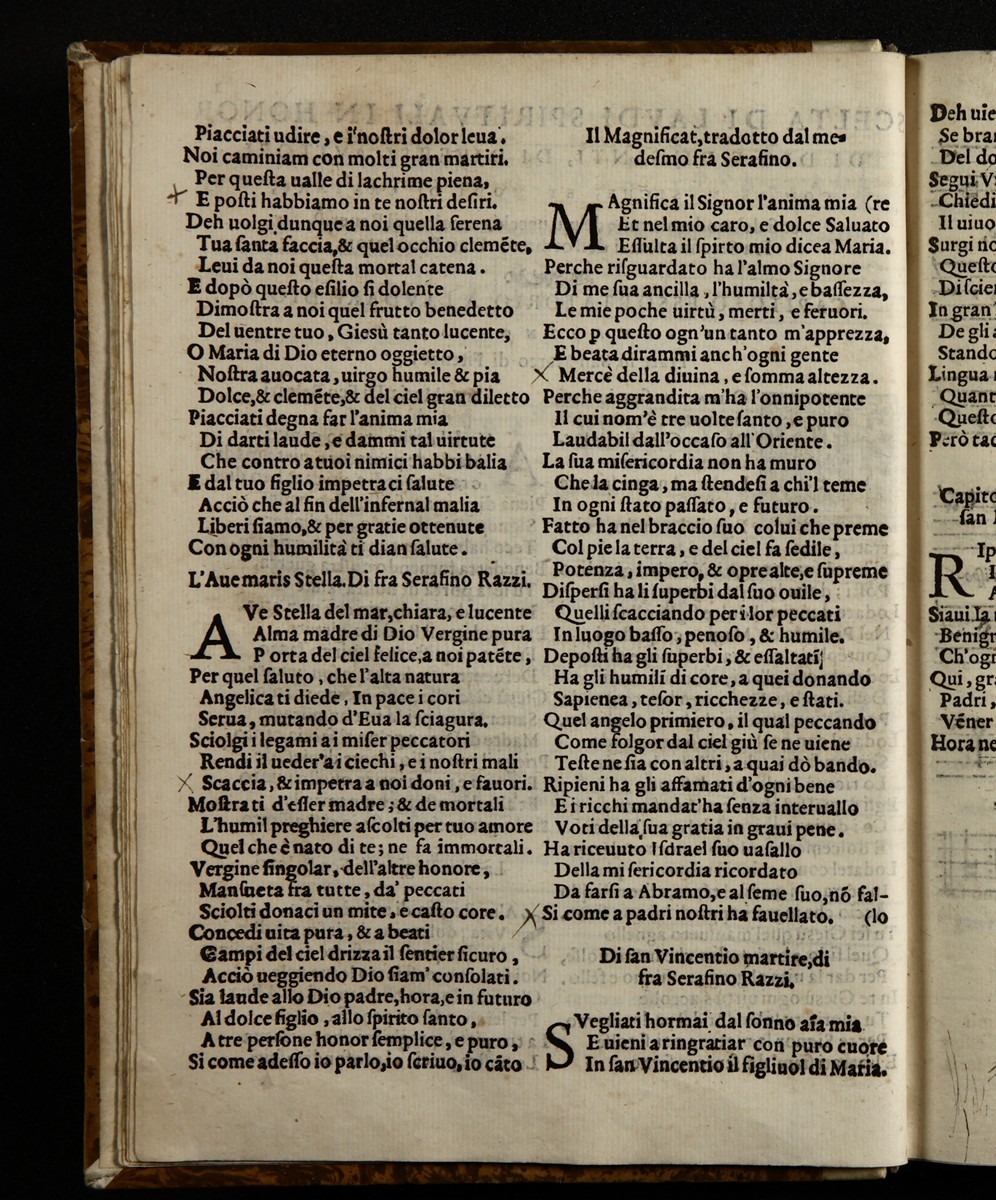 Piacciati udire, e i' noſtri dolor leua.
Noi caminiam con molti gran martiri.
Per queſta ualle di lachrime piena,
E poſti habbiamo in te noſtri deſiri.
Deh uolgi dunque a noi quella ſerena
Tua ſanta faccia, & quel occhio clemẽte,
Leui da noi queſta mortal catena.
E dopò queſto eſilio ſi dolente
Dimoſtra a noi quel frutto benedetto
Del uentre tuo, Giesù tanto lucente,
O Maria di Dio eterno oggietto,
Noſtra auocata, uirgo humile & pia
Dolce, & clemẽte, & del ciel gran diletto
Piacciati degna far l'anima mia
Di darti laude, e dammi tal uirtute
Che contro a tuoi nimici habbi balia
E dal tuo figlio impetraci ſalute
Acciò che al fin dell'infernal malia
Liberi ſiamo, & per gratie ottenute
Con ogni humilità ti dian ſalute.
L'Aue maris Stella. Di fra Serafino Razzi.
AVe Stella del mar, chiara, e lucente
Alma madre di Dio Vergine pura
Porta del ciel felice, a noi patẽte,
Per quel ſaluto, che l'alta natura
Angelica ti diede, In pace i cori
Serua, mutando d'Eua la ſciagura.
Sciolgi i legami ai miſer peccatori
Rendi il ueder' ai ciechi, e i noſtri mali
Scaccia, & impetra a noi doni, e fauori.
Moſtra ti d'eſſer madre; & de mortali
L'humil preghiere aſcolti per tuo amore
Quel che è nato di te; ne fa immortali.
Vergine ſingolar, dell'altre honore,
Manſueta fra tutte, da' peccati
Sciolti donaci un mite, e caſto core.
Concedi uita pura, & a beati
Campi del ciel drizza il ſentier ſicuro,
Acciò ueggiendo Dio ſiam' conſolati.
Sia laude allo Dio padre, hora, e in futuro
Al dolce figlio, allo ſpirito ſanto,
A tre perſone honor ſemplice, e puro,
Si come adeſſo io parlo, io ſcriuo, io cãto
Il Magnificat, tradotto dal me-
deſmo fra Serafino.
MAgnifica il Signor l'anima mia (re
Et nel mio caro, e dolce Saluato
Eſſulta il ſpirto mio dicea Maria.
Perche riſguardato ha l'almo Signore
Di me ſua ancilla, l'humiltà, e baſſezza,
Le mie poche uirtù, merti, e feruori.
Ecco p queſto ogn'un tanto m'apprezza,
E beata dirammi anch'ogni gente
Mercè della diuina, e ſomma altezza.
Perche aggrandita m'ha l'onnipotente
Il cui nom'è tre uolte ſanto, e puro
Laudabil dall'occaſo all'Oriente.
La ſua miſericordia non ha muro
Che la cinga, ma ſtendeſi a chi'l teme
In ogni ſtato paſſato, e futuro.
Fatto ha nel braccio ſuo colui che preme
Col pie la terra, e del ciel fa ſedile,
Potenza, impero, & opre alte, e ſupreme
Diſperſi ha li ſuperbi dal ſuo ouile,
Quelli ſcacciando per i lor peccati
In luogo baſſo, penoſo, & humile.
Depoſti ha gli ſuperbi, & eſſaltati
Ha gli humili di core, a quei donando
Sapienea, teſor, ricchezze, e ſtati.
Quel angelo primiero, il qual peccando
Come folgor dal ciel giù ſe ne uiene
Teſte ne ſia con altri, a quai dò bando.
Ripieni ha gli affamati d'ogni bene
E i ricchi mandat'ha ſenza interuallo
Voti della ſua gratia in graui pene.
Ha riceuuto Iſdrael ſuo uaſallo
Della miſericordia ricordato
Da farſi a Abramo, e al ſeme ſuo, nõ fal-
Si come a padri noſtri ha fauellato. (lo
Di ſan Vincentio martire, di
fra Serafino Razzi.
SVegliati hormai dal ſonno aĩa mia
E uieni a ringratiar con puro cuore
In ſan Vincentio il figliuol di Maria.
Deh uie
Se bra
Del do
Segui V
Chiedi
Il uiuo
Surgi
Queſto
Di ſcie
In gran
De gli
Stando
Lingua
Quant
Queſto
Però tac
Capito
ſan
RIp
Siaui la
Benign
Ch'ogn
Qui, gr
Padri,
Véner
Hora ne